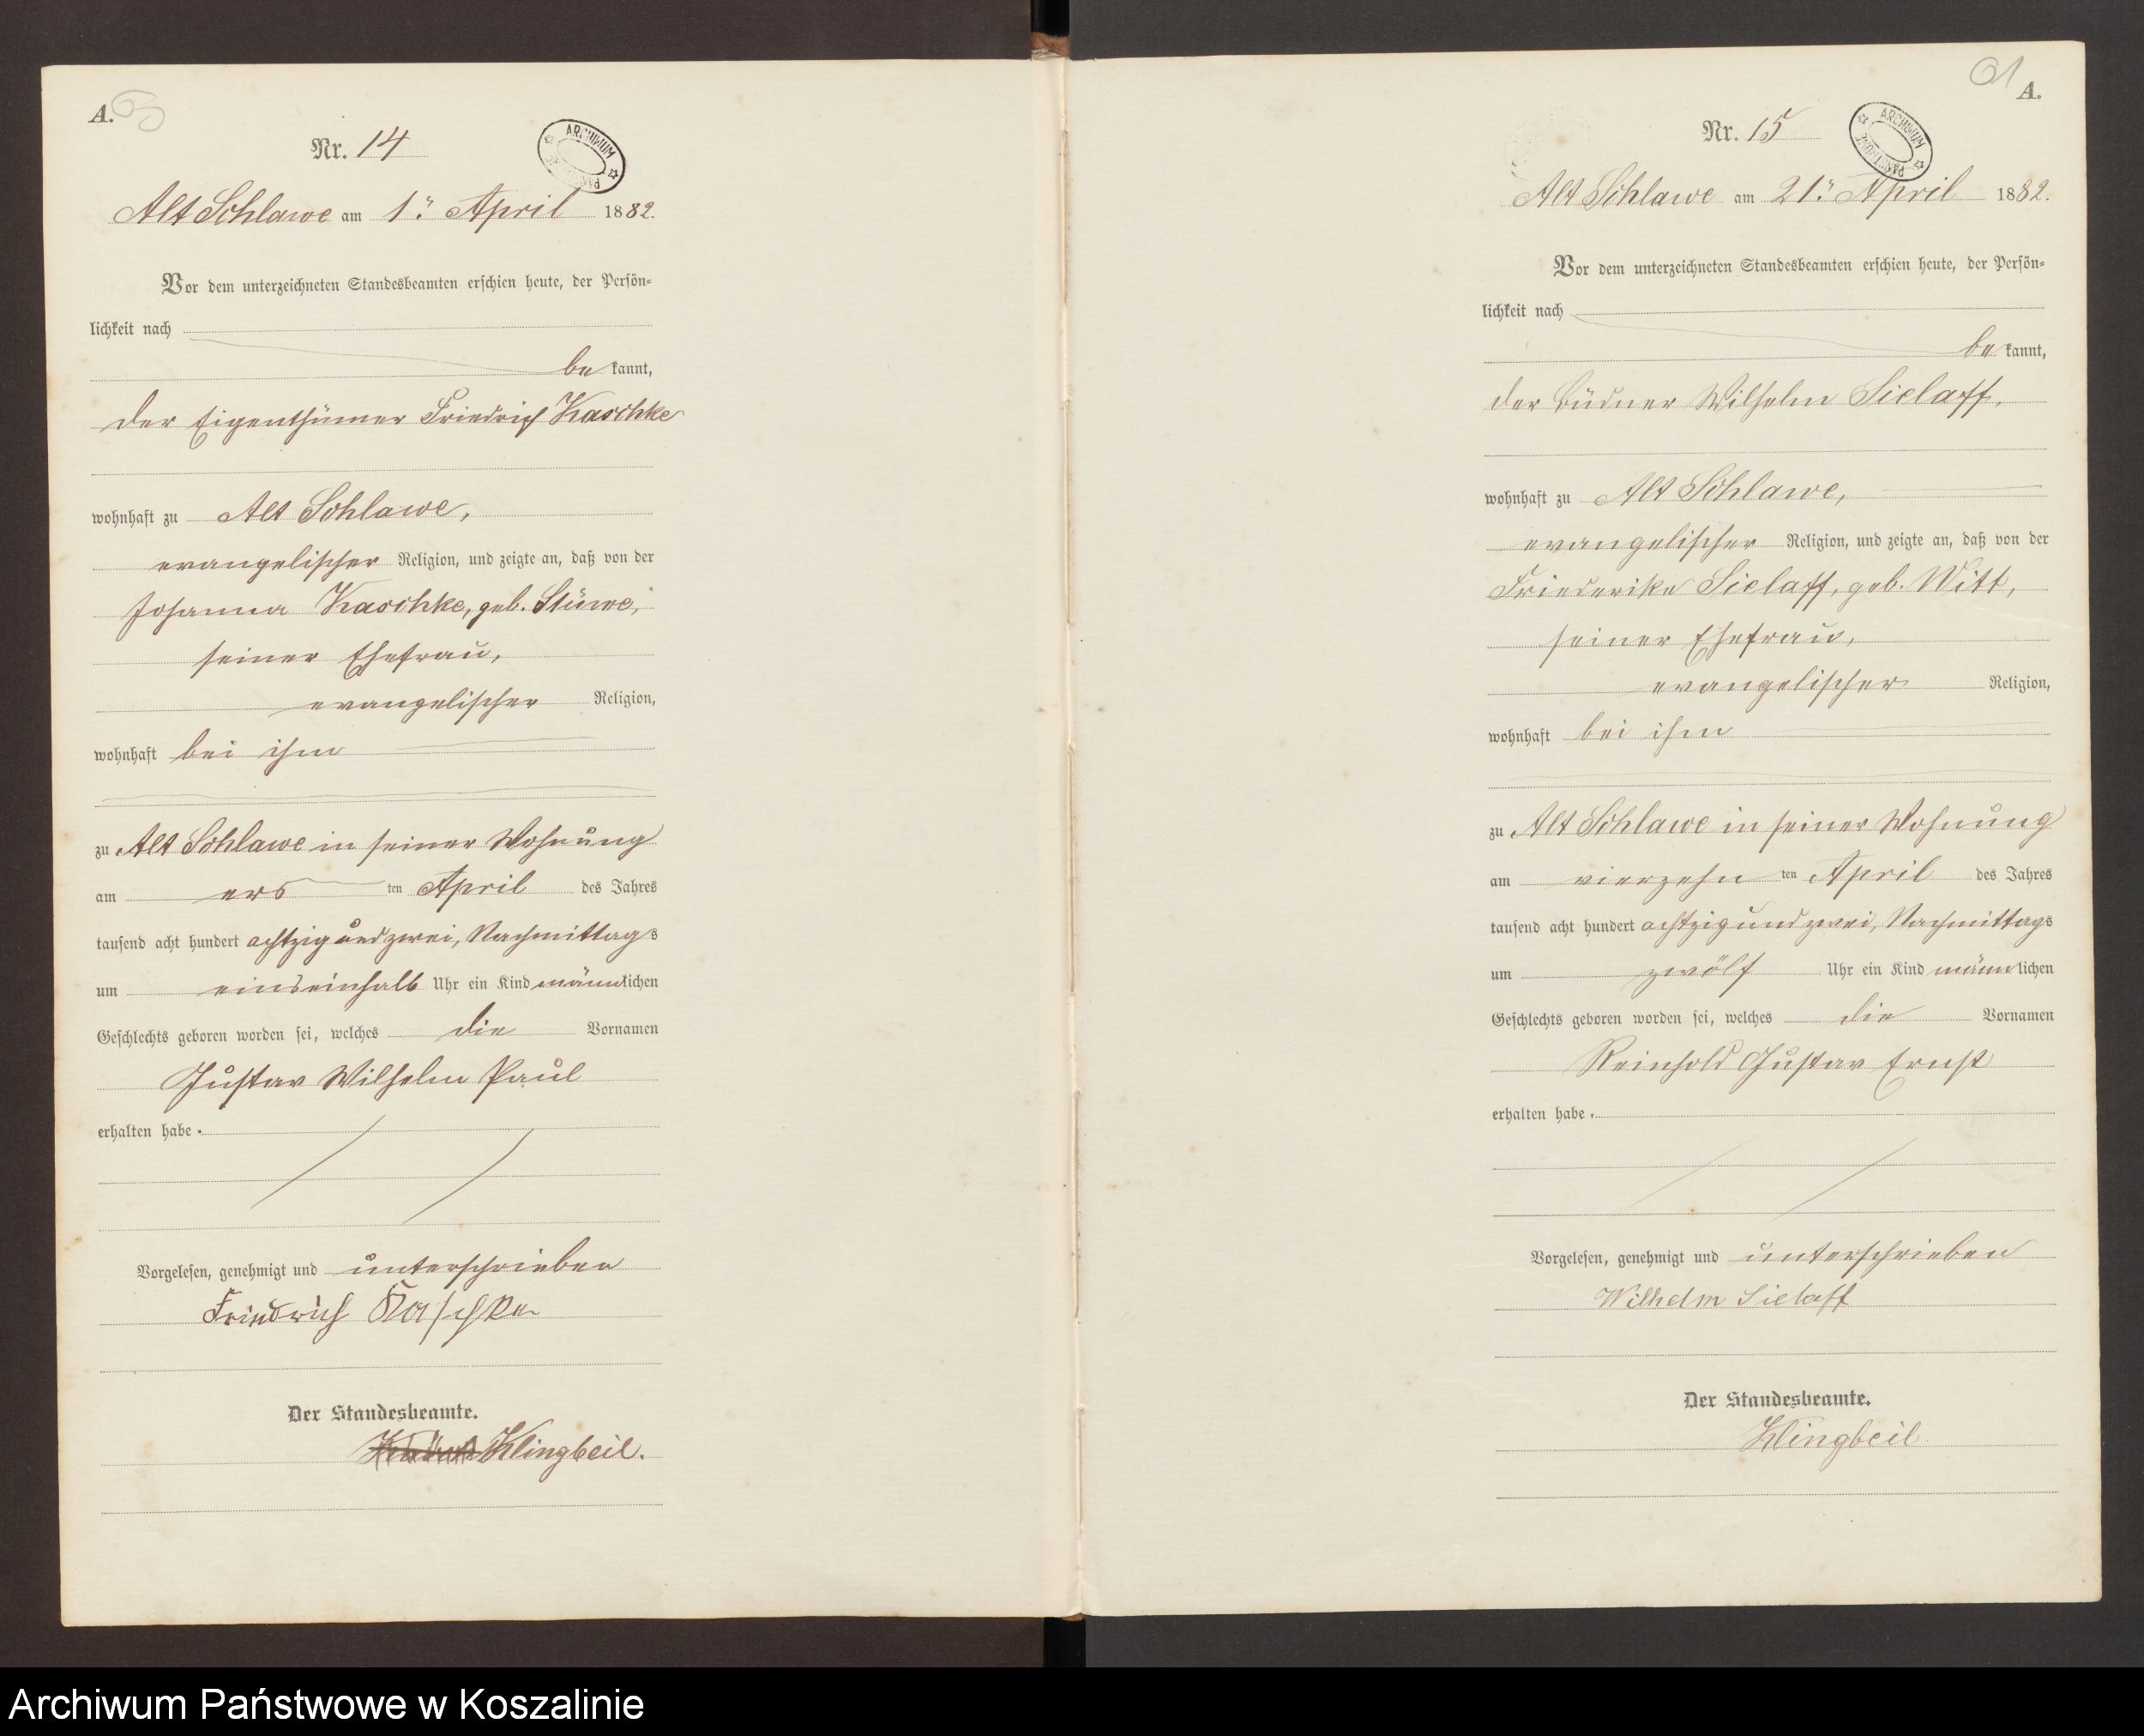 A. 60
Nr. 14
ARCHIWUM
Alt Schlawe am 1.ⁿ April 1882.
Vor dem unterzeichneten Standesbeamten erschien heute, der Persön=
lichkeit nach
be kannt,
der Eigenthümer Friedrich Kaschke
wohnhaft zu Alt Schlawe,
evangelischer Religion, und zeigte an, daß von der
Johanna Kaschke, geb. Stüwe,
seiner Ehefrau,
evangelischer Religion,
wohnhaft bei ihm
zu Alt Schlawe in seiner Wohnung
am ers ten April des Jahres
tausend acht hundert achtzig und zwei, Nachmittags
um einseinhalb Uhr ein Kind männlichen
Geschlechts geboren worden sei, welches die Vornamen
Gustav Wilhelm Paul
erhalten habe.
Vorgelesen, genehmigt und unterschrieben
Friedrich Kaschke
Der Standesbeamte.
Klingbeil.
61 A.
Nr. 15
ARCHIWUM
Alt Schlawe am 21.ⁿ April 1882.
Vor dem unterzeichneten Standesbeamten erschien heute, der Persön=
lichkeit nach
be kannt,
der Büdner Wilhelm Sielaff,
wohnhaft zu Alt Schlawe,
evangelischer Religion, und zeigte an, daß von der
Friederike Sielaff, geb. Witt,
seiner Ehefrau,
evangelischer Religion,
wohnhaft bei ihm
zu Alt Schlawe in seiner Wohnung
am vierzehn ten April des Jahres
tausend acht hundert achtzig und zwei, Nachmittags
um zwölf Uhr ein Kind männlichen
Geschlechts geboren worden sei, welches die Vornamen
Reinhold Gustav Ernst
erhalten habe.
Vorgelesen, genehmigt und unterschrieben
Wilhelm Sielaff
Der Standesbeamte.
Klingbeil
Archiwum Państwowe w Koszalinie